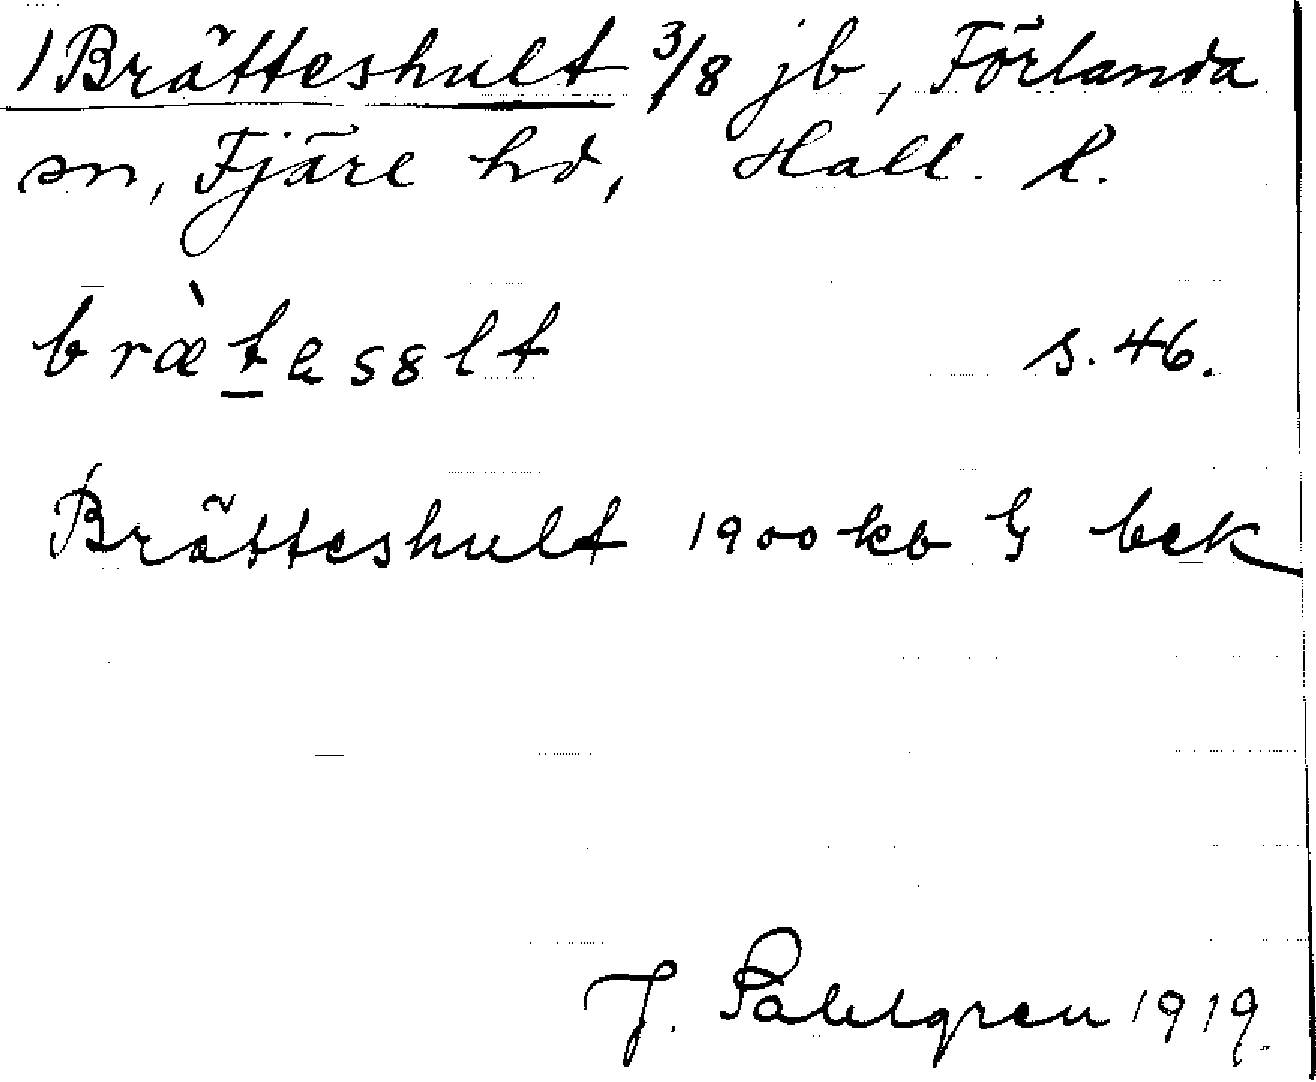 1 Brätteshult 3/8 jb, Förlanda
sn, Fjäre hd, Hall. l.
bræ̀t̲as8lt s. 46.
Brätteshult 1900 kb G bek
J. Sahlgren 1919.